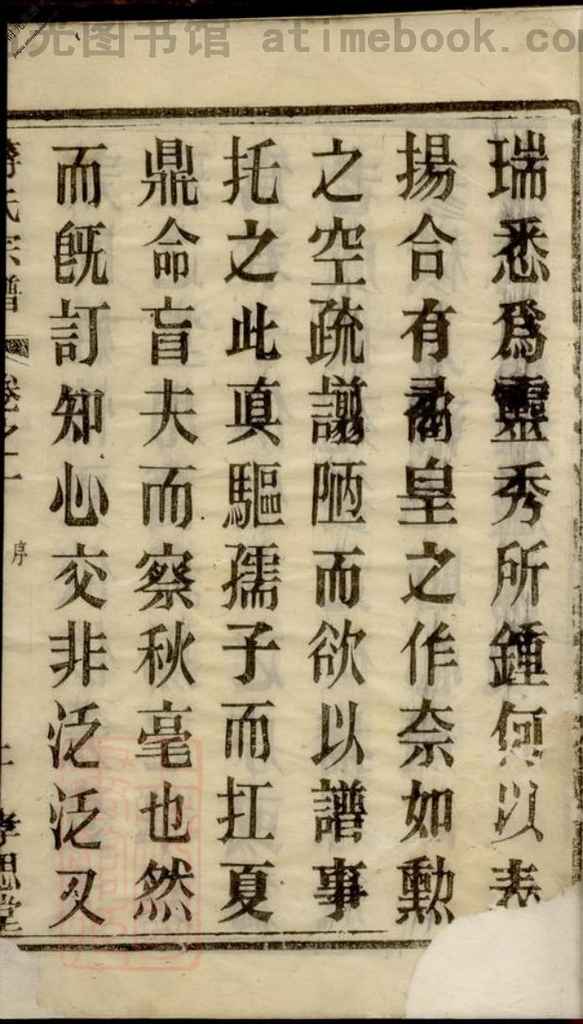 时光图书馆 atimebook.com
瑞悉為靈秀所鍾何以表
揚合有矞皇之作奈如勲
之空疏譾陋而欲以譜事
托之此真驅孺子而扛夏
鼎命盲夫而察秋毫也然
而旣訂知心交非泛泛又
氏宗譜 卷之二 序 孝思堂